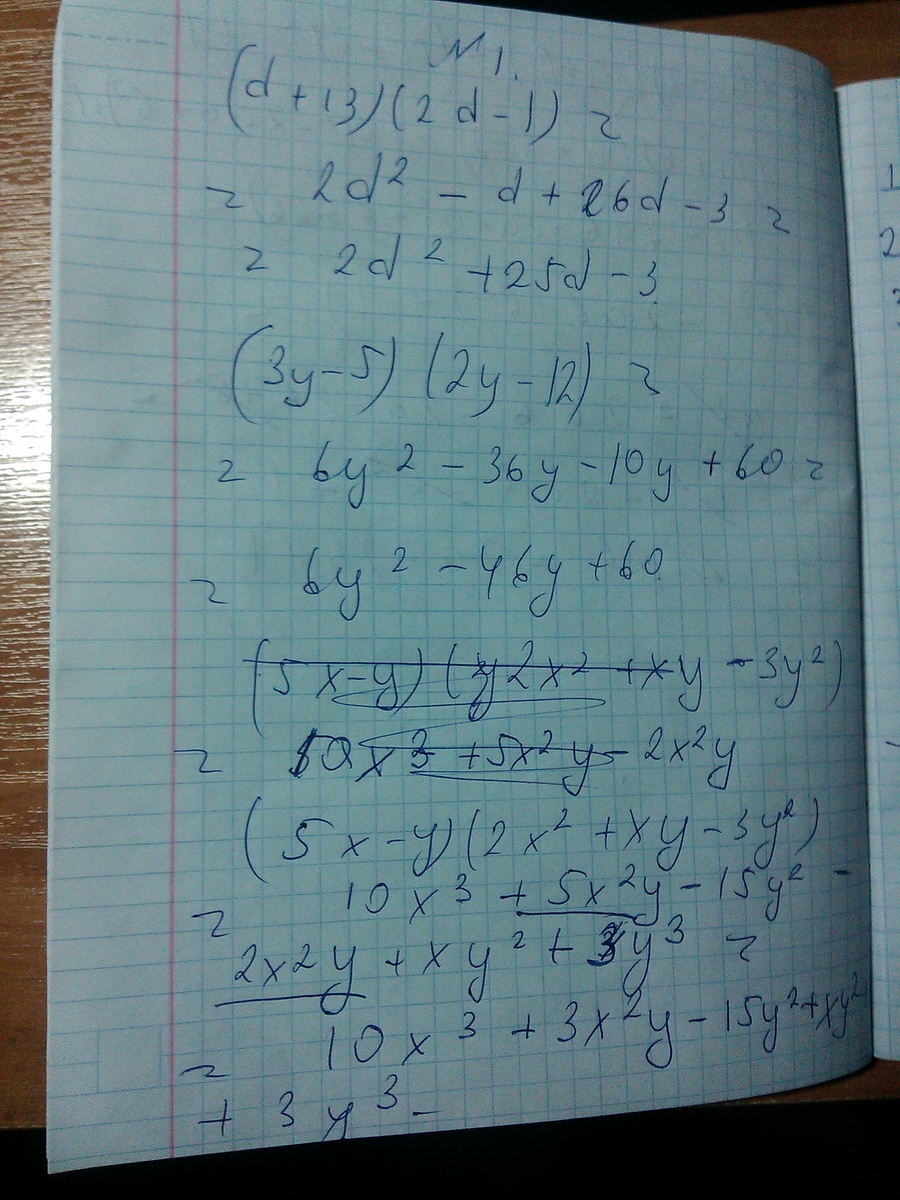 №1.
(d+13)(2d-1) =
= 2d² - d + 26d - 3 =
= 2d² + 25d - 3
(3y-5) (2y-12) =
= 6y² - 36y - 10y + 60 =
= 6y² - 46y + 60
(5x-y)(y2x² + xy - 3y²)
= 10x³ + 5x²y - 2x²y
(5x-y)(2x² + xy - 3y²)
= 10x³ + 5x²y - 15y² -
2x2y + xy² + 3y³ =
= 10x³ + 3x²y - 15y² + xy²
+ 3y³ -
1
2